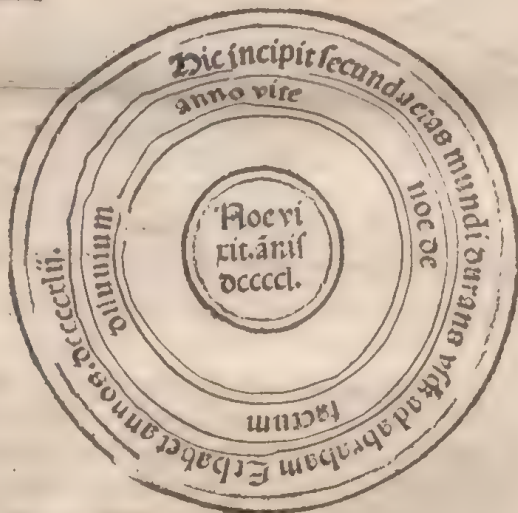 Hic incipit ſecunda etas mundi durans vſqꝫ ad abraham Et habet annos. dccccxlii.
anno vite
noe dc
factum
diluuium
Noe vi
xit. āniſ
dccccl.